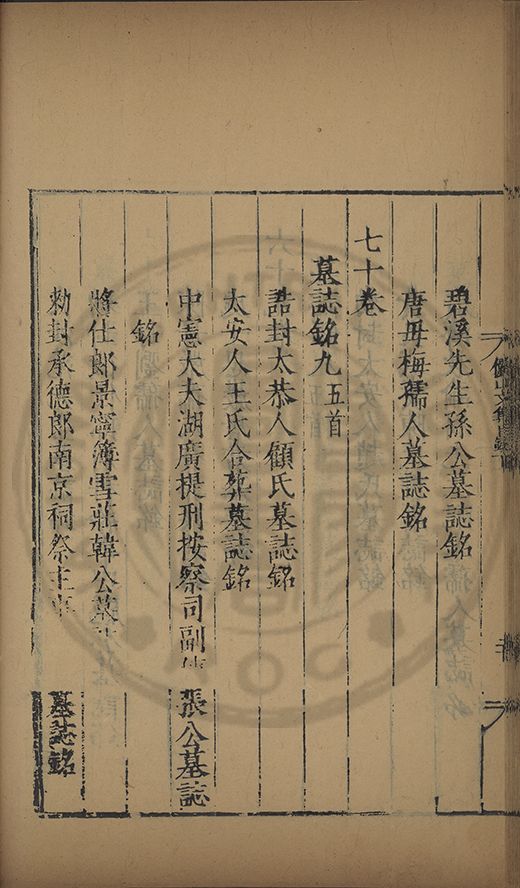 碧溪先生孫公墓誌銘
唐母梅孺人墓誌銘
七十卷
墓誌銘九 五首
誥封太恭人顧氏墓誌銘
太安人王氏合葬墓誌銘
中憲大夫湖廣提刑按察司副使張公墓誌
銘
將仕郎景寧簿雪莊韓公墓
勑封承德郎南京祠祭主事 墓誌銘